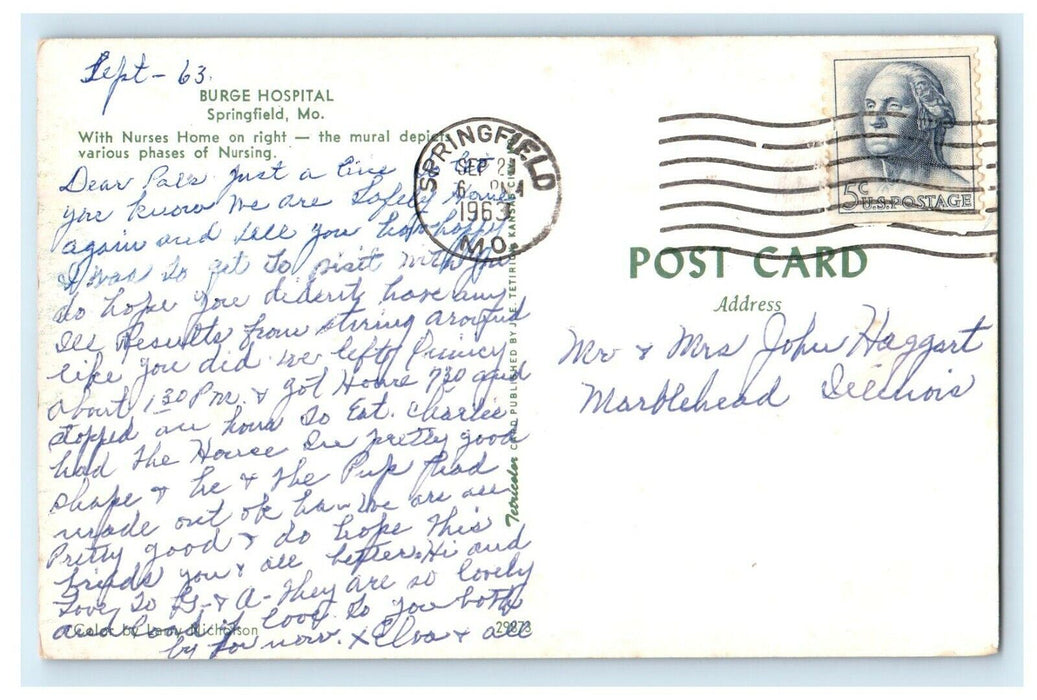 Sept - 63.
BURGE HOSPITAL
Springfield, Mo.
With Nurses Home on right — the mural depicts
various phases of Nursing.
Dear Pals Just a line to let
you know we are Safely Home
again and tell you how happy
I was to get to visit with you
do hope you diden't have any
Ill Results from stiring around
like you did we left Quincy
about 1 30 P.M. & got Home 7 30 and
stopped an hour to Eat. Charlie
had the House in pretty good
shape & he & the Pup had
made out ok ha - We are all
Pretty good & do hope this
finds you & all better. Hi and
Love to G- & A- They are so lovely
and Lots of love to you both
by for now. x Elva & all
Color by Larry Nicholson
29873
Tetricolor CARD PUBLISHED BY JOE. TETIRICK KANSAS
SPRINGFIELD
SEP 2
6 PM
1963
MO.
5c
U.S. POSTAGE
POST CARD
Address
Mr & Mrs John Haggart
Marblehead Illinois